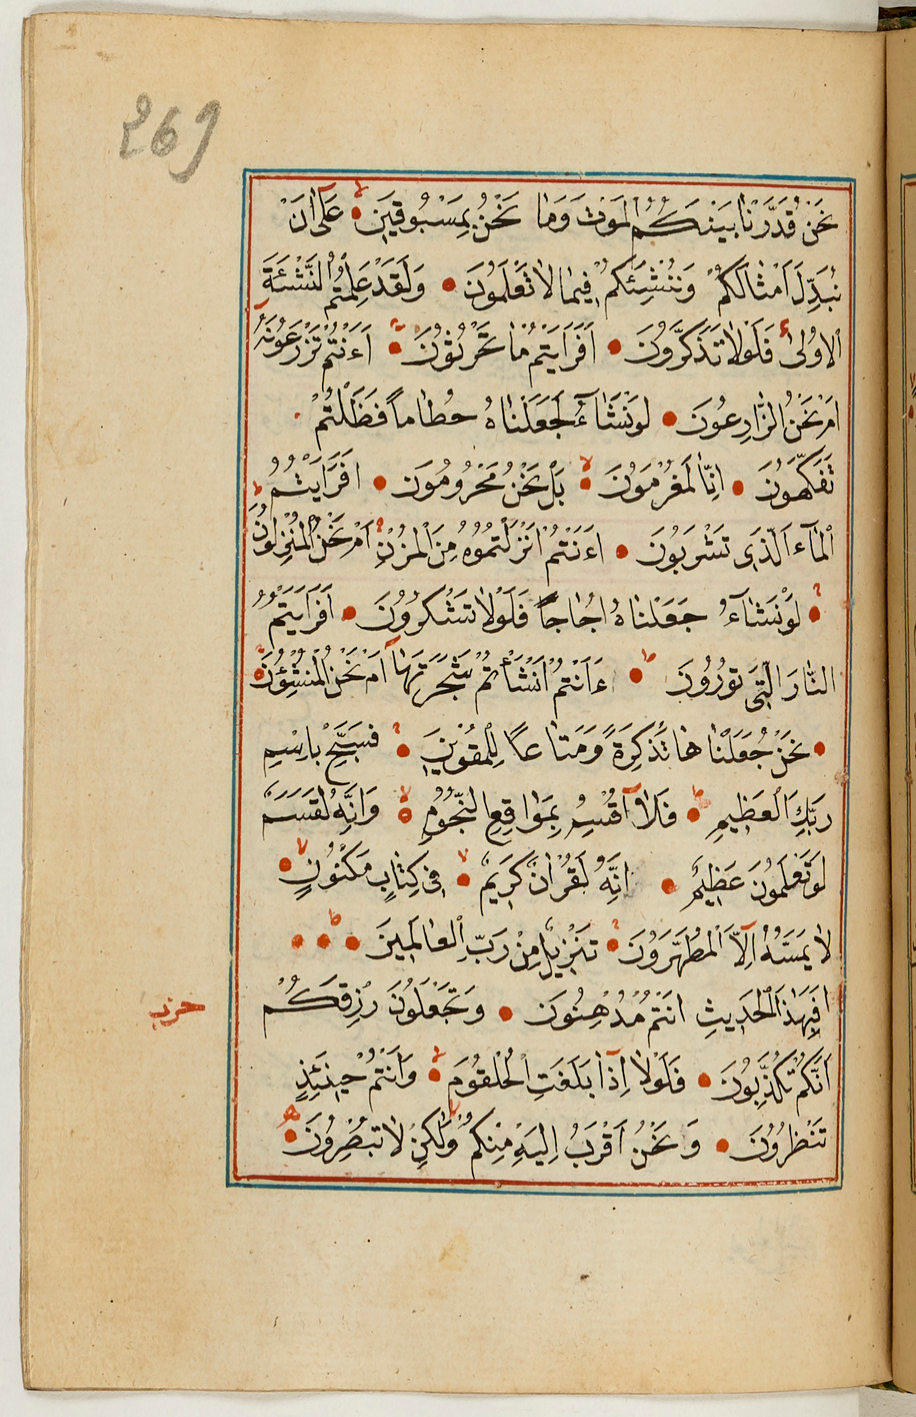 269
نَحْنُ قَدَّرْنَا بَيْنَكُمُ الْمَوْتَ وَمَا نَحْنُ بِمَسْبُوقِينَ عَلٰٓى اَنْ
نُبَدِّلَ اَمْثَالَكُمْ وَنُنْشِئَكُمْ فِيمَا لَا تَعْلَمُونَ وَلَقَدْ عَلِمْتُمُ النَّشْئَةَ
الْاُولٰى فَلَوْلَا تَذَكَّرُونَ اَفَرَاَيْتُمْ مَا تَحْرُثُونَ ءَاَنْتُمْ تَزْرَعُونَهُٓ
اَمْ نَحْنُ الزَّارِعُونَ لَوْ نَشَٓاءُ لَجَعَلْنَاهُ حُطَامًا فَظَلْتُمْ
تَفَكَّهُونَ اِنَّا لَمُغْرَمُونَ بَلْ نَحْنُ مَحْرُومُونَ اَفَرَاَيْتُمُ
الْمَٓاءَ الَّذِى تَشْرَبُونَ ءَاَنْتُمْ اَنْزَلْتُمُوهُ مِنَ الْمُزْنِ اَمْ نَحْنُ الْمُنْزِلُونَ
لَوْ نَشَٓاءُ جَعَلْنَاهُ اُجَاجًا فَلَوْلَا تَشْكُرُونَ اَفَرَاَيْتُمُ
النَّارَ الَّتِى تُورُونَ ءَاَنْتُمْ اَنْشَأْتُمْ شَجَرَتَهَٓا اَمْ نَحْنُ الْمُنْشِؤُنَ
نَحْنُ جَعَلْنَاهَا تَذْكِرَةً وَمَتَاعًا لِلْمُقْوِينَ فَسَبِّحْ بِاسْمِ
رَبِّكَ الْعَظِيمِ فَلَٓا اُقْسِمُ بِمَوَاقِعِ النُّجُومِ وَاِنَّهُ لَقَسَمٌ
لَوْ تَعْلَمُونَ عَظِيمٌ اِنَّهُ لَقُرْاٰنٌ كَرِيمٌ فِى كِتَابٍ مَكْنُونٍ
لَا يَمَسُّهُٓ اِلَّا الْمُطَهَّرُونَ تَنْزِيلٌ مِنْ رَبِّ الْعَالَمِينَ
اَفَبِهٰذَا الْحَدِيثِ اَنْتُمْ مُدْهِنُونَ وَتَجْعَلُونَ رِزْقَكُمْ
حزب
اَنَّكُمْ تُكَذِّبُونَ فَلَوْلَٓا اِذَا بَلَغَتِ الْحُلْقُومَ وَاَنْتُمْ حِينَئِذٍ
تَنْظُرُونَ وَنَحْنُ اَقْرَبُ اِلَيْهِ مِنْكُمْ وَلٰكِنْ لَا تُبْصِرُونَ